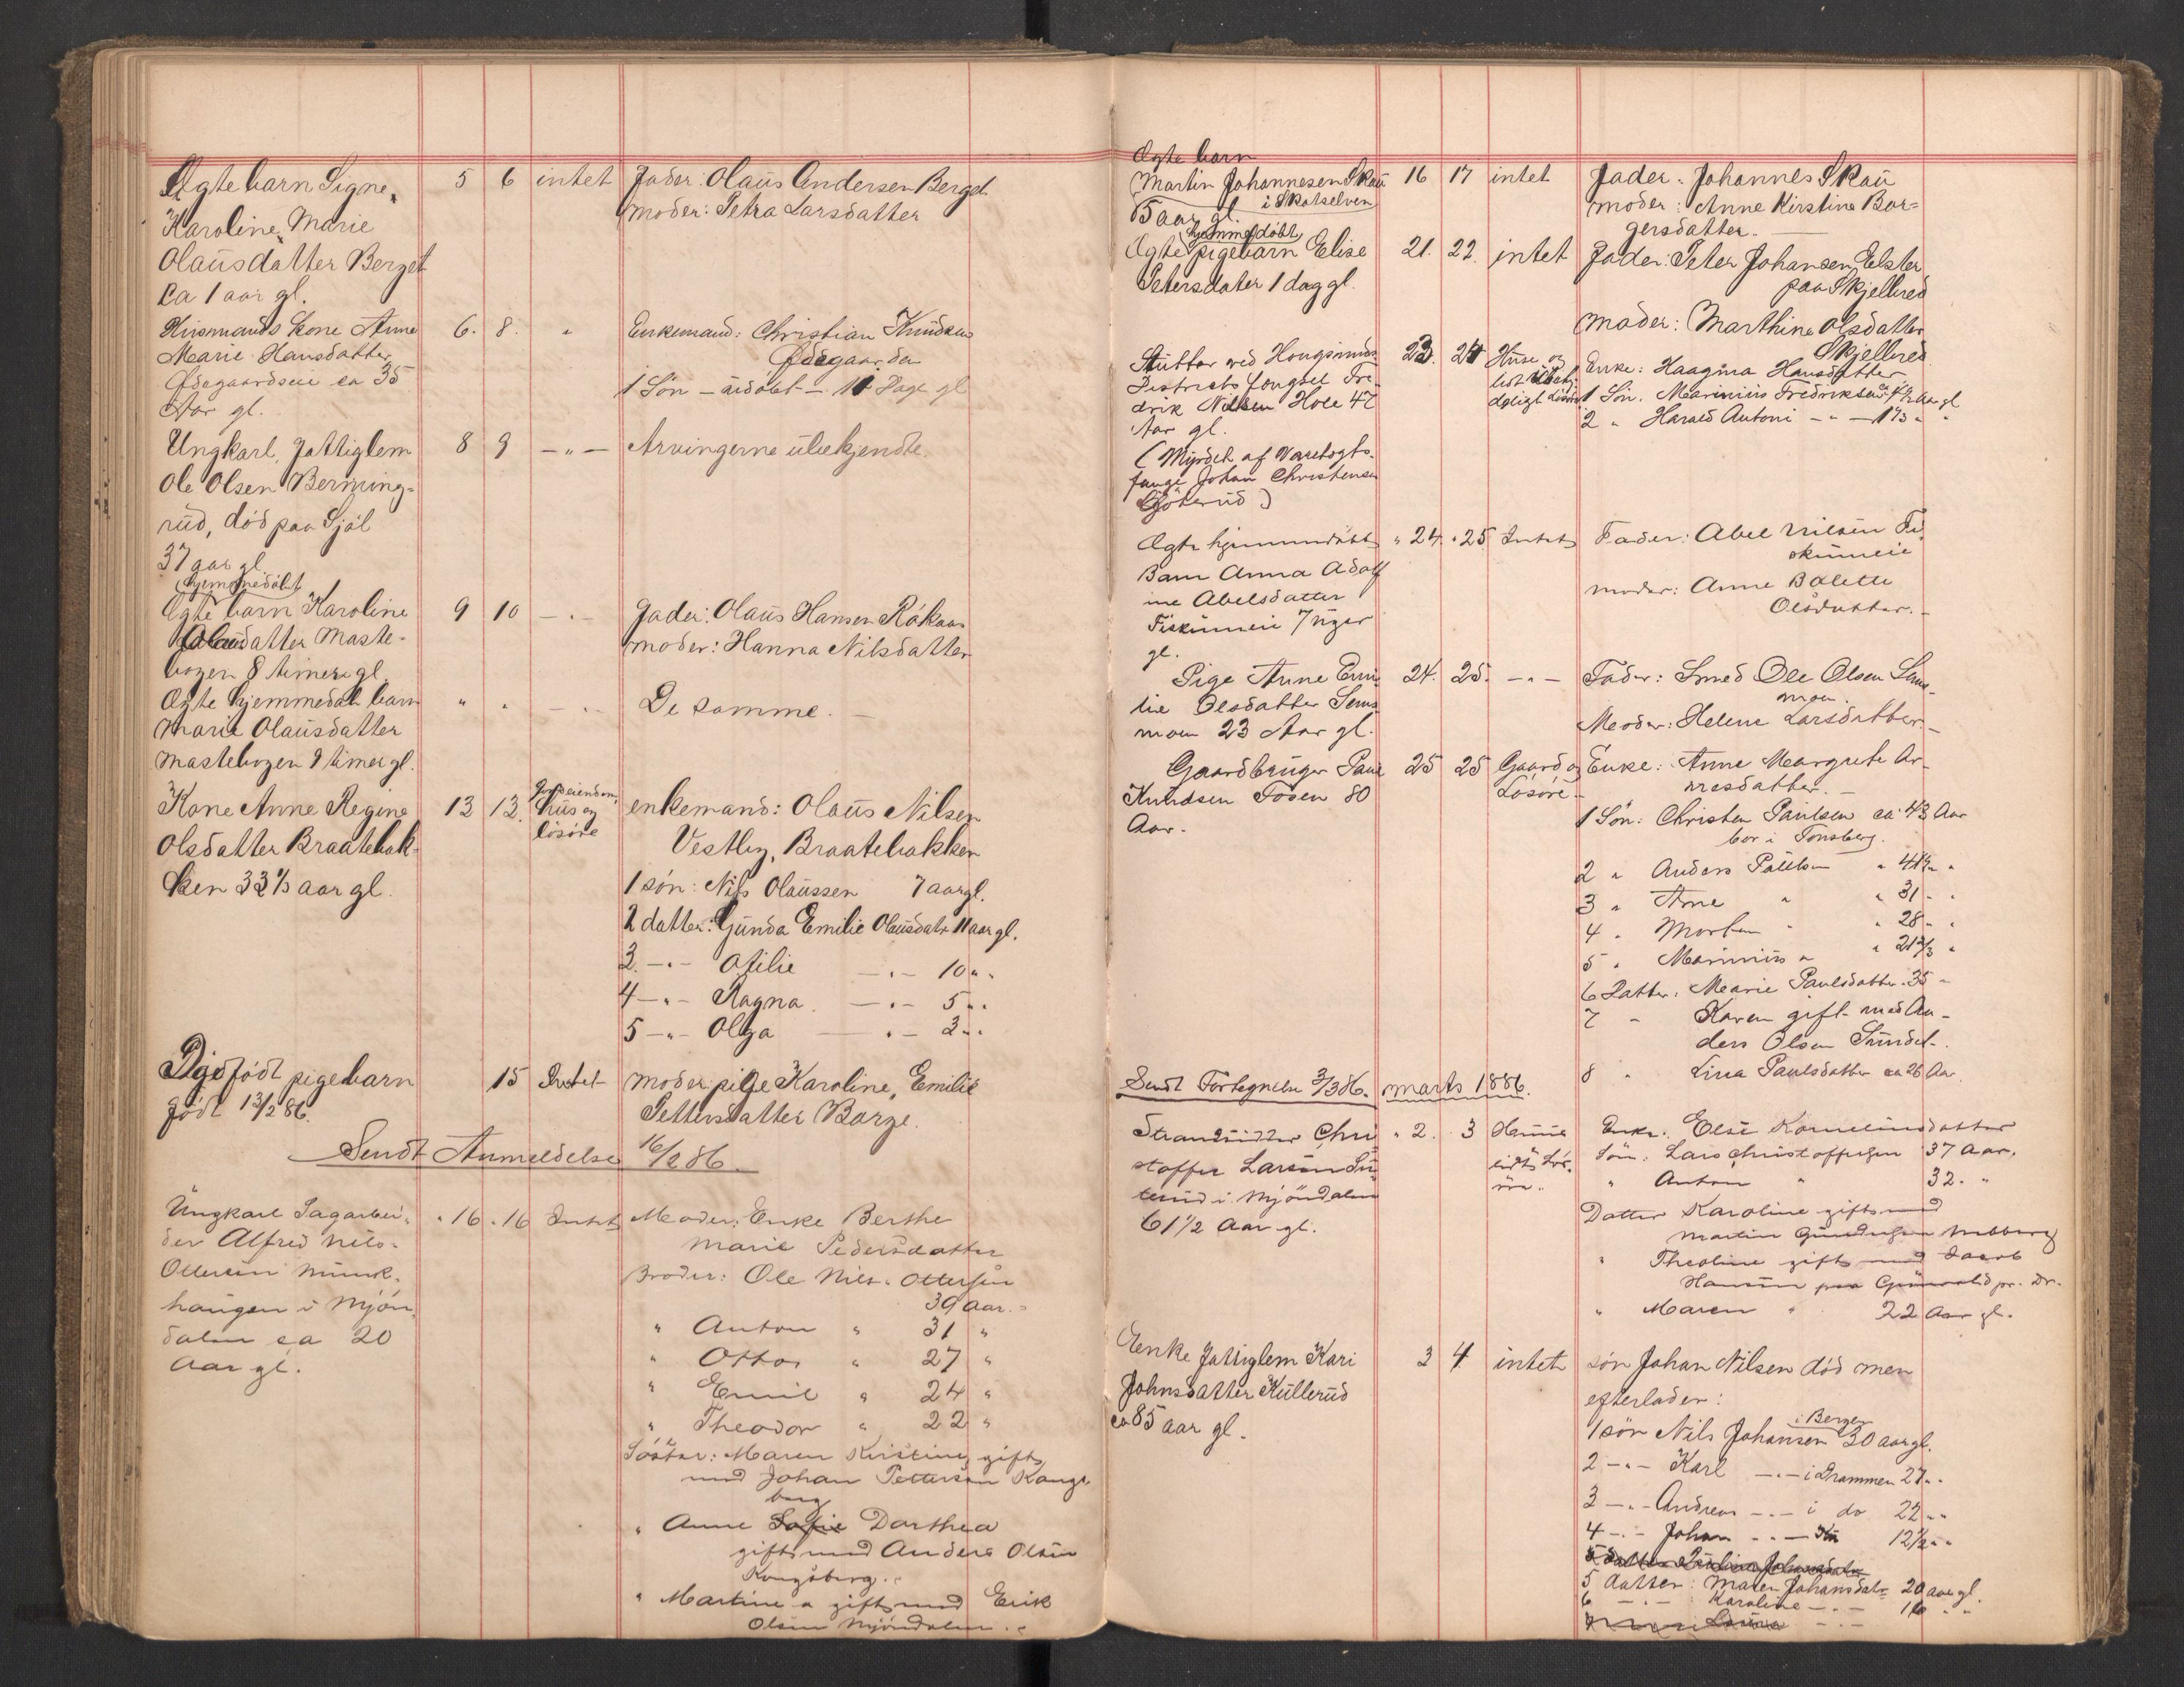 Ægte barn Signe, 5 6 intet Fader: Olaus Andersen Berget
Karoline, Marie moder: Petra Larsdatter
Olausdatter Berget
ca 1 aar gl.
Husmands kone Anne 6. 8. " Enkemand: Christian Knudsen
Marie Hansdatter Ødegaarden
Ødegaardseie ca 35 1 Søn – udøbt – 11 Dage gl
Aar gl.
Ungkarl, fattiglem 8 9 – " – Arvingerne ubekjendte.
Ole Olsen Berming-
rud, død paa Sjøl
37 aar gl
hjemmedøbt
Ægte barn Karoline 9 10 – " – Fader: Olaus Hansen Røkaas
Olausdatter Maste- moder: Hanna Nilsdatter
bogen 8 timer gl.
Ægte hjemmedøbt barn " " – " – De samme. –
Marie Olausdatter
Mastebogen 9 timer gl.
Kone Anne Regine 13 13. hus og løsøre enkemand: Olaus Nilsen
Olsdatter Braatebak- Vestby, Braatebakken
ken 33 1/3 aar gl. 1 søn: Nils Olaussen 7 aar gl.
2 datter: Gunda Emilie Olausdatr 11 aar gl.
3 – " – Otilie – " – 10 " "
4 – " – Ragna – " – 5 " "
5 – " – Olga – " – 3 " "
Dødfødt pigebarn 15 Intet moder pige Karoline, Emilie
født 13/2 86. Pettersdatter Borge.
Sendt Anmeldelse 16/2 86.
Ungkarl Sagarbei- " 16 " 16 Intet Moder: Enke Berthe
der Alfred Nils- Marie Pedersdatter
Ottersen Munk- Broder: Ole Nils. Ottersen
haugen i Mjøn- 39 aar. "
dalen ca 20 " Anton " 31 "
Aar gl. " Otto " 27 "
" Emil " 24 "
" Theodor " 22 "
Søster: Maren Kristine, gift
med Johan Pettersen Kongs-
berg
" Anne Sofie Dorthea
gift med Anders Olsen
Kongsberg. "
" Martine " gift med Erik
Olsen Mjøndalen. "
Ægte barn
Martin Johannesen Skau 16 17 intet Fader: Johannes Skau
i Skotselven moder: Anne Kirstine Bor-
5 aar gl. gersdatter. –
hjemmedøbt
Ægte pigebarn Elise 21. 22. intet Fader: Peter Johansen Eelster
Petersdater 1 dag gl. paa Skjellred
moder: Marthine Olsdatter
Skjellred
Slutter ved Hougsunds 23. 24 Huse og Enke: Haagina Hansdatter
Districts fængsel Fre- 1 Søn. Marinius Fredriksen 4 1/2 Aar gl
drik Nilsen Hole 47 2 " Harald Antoni – " – 1 1/3 " "
Aar gl.
(Myrdet af Varetægts-
fange Johan Christensen
)
Ægte hjemmedøbt " 24. " 25 Intet Fader: Abel Nilsen Fi-
Barn Anna Adolf skumeie
ine Abelsdatter moder: Anne Bolette
Fiskumeie 7 uger Olsdatter. –
gl.
Pige Anne Emi- 24. 25. – " – Fader: Smed Ole Olsen Sems-
lie Olsdatter Sems- moen.
moen 23 Aar gl. Moder: Helene Larsdatter –
Gaardbruger Paul 25 25 Gaard og Enke: Anne Margrete Ar-
Knudsen Fosen 80 Løsøre – nesdatter. –
Aar. 1 Søn: Christen Paulsen ca 43 Aar
bor i Tønsberg.
2 " Anders Paulsen " 41 1/2 " "
3 " Arne " " 31 " "
4 " Morten " " 28 " "
5 " Marinius " " 21 2/3 "
6 Datter: Marie Paulsdatter 35 "
7 " Karen gift med An-
ders Olsen Sundet.
8 " Lina Paulsdatter ca 26 Aar
Sendt Fortegnelse 3/3 86. marts 1886.
Strandsidder Chri " 2. 3 Enke: Else Kornelius datter
stoffer Larsen Søn: Lars Christoffersen 37 Aar.
i Mjøndalen " Anton " 32. "
61 1/2 Aar gl. Datter Karoline gift med
Martin Gundersen
" Theoline gift med Jacob
Hansen paa pr. Dr.
" Maren " 22 Aar gl.
Enke Fattiglem Kari 3 4 intet søn Johan Nilsen død men
Johnsdatter Kullerud efterlader:
ca 85 aar gl. 1 søn Nils Johansen i Bergen 30 aar gl.
2 – " – Karl – " – i Drammen 27 " "
3 – " – Andreas – " – i do 22 " "
4 – " – Johan – " – 12 1/2 " "
5 datter: Maren Johansdatr 20 aar gl.
6 – " – Karoline – " – 16 " "
7 Laura – " –